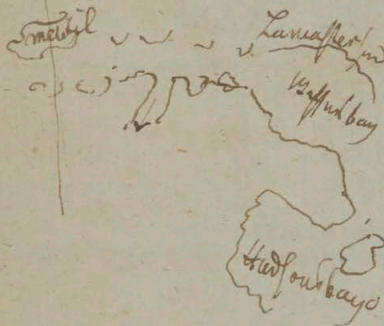 Melvil
Lancaster
Baffinsbay
Hudsonsbayo